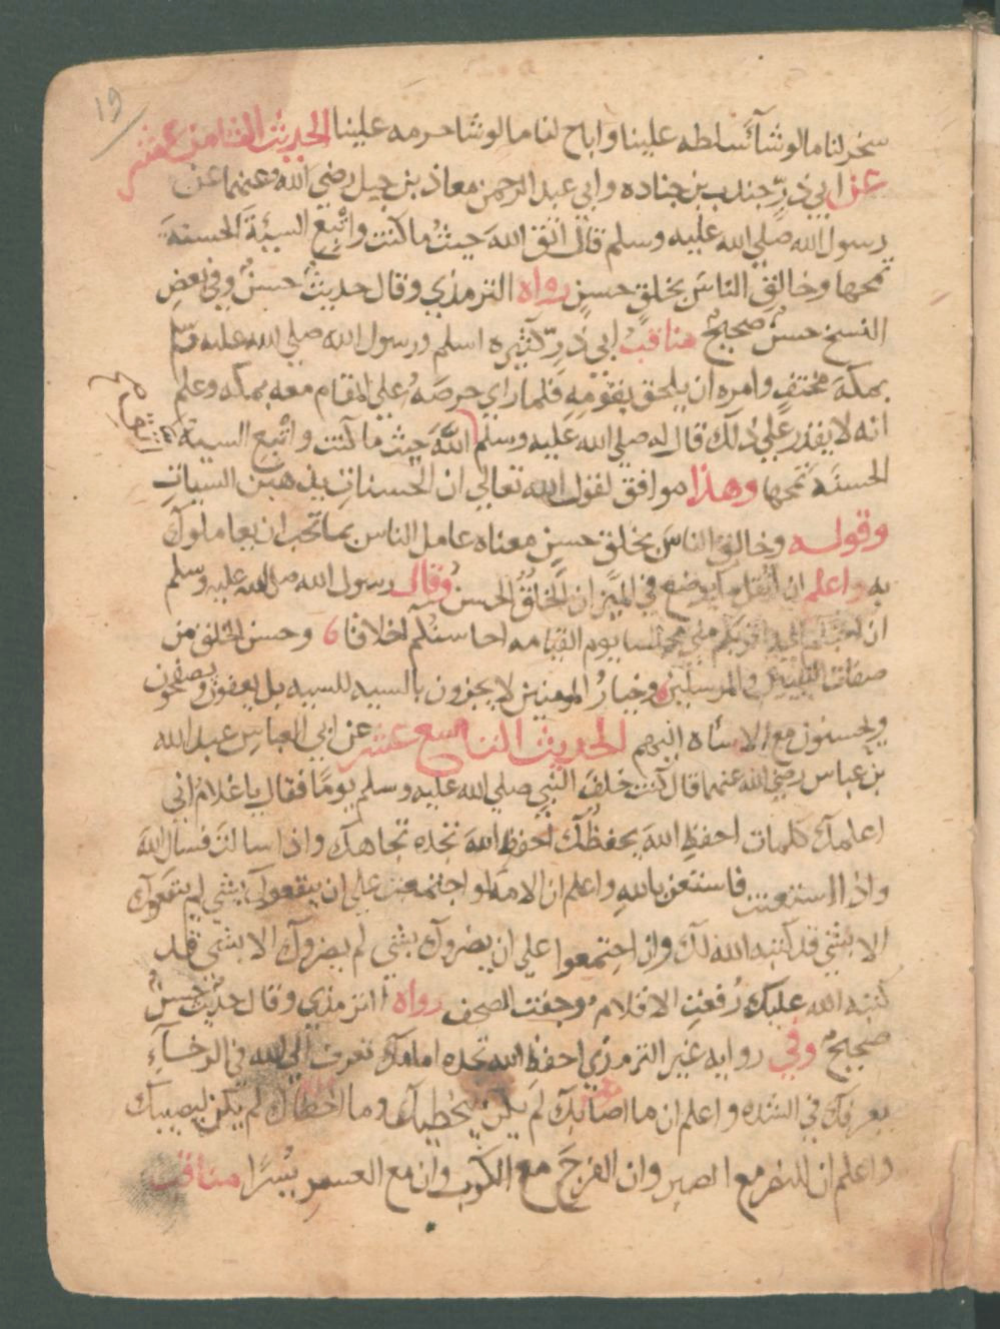 19
سخر لنا ما لو شآ سلطه علينا واباح لنا ما لو شا حرمه علينا الحديث الثامن عشر
عن ابي ذرٍّ جندب بن جناده وابي عبد الرحمن معاذ بن جبل رضي الله عنهما عن
رسول الله صلي الله عليه وسلم قال اتق الله حيثُ ما كنت واتْبع السيئةَ الحسنةَ
تمحها وخالقِ الناسَ بخلقٍ حسنٍ رواه الترمذي وقال حديثٌ حسنٌ وفي بعضِ
النسخ حسنٌ صحيحٌ مناقبُ ابي ذرٍ كثيره اسلم ورسول الله صلي الله عليه وسلم
بمكةَ مختفٍ وامره ان يلحق بقومِهِ فلما راي حرصَهُ علي المقام معه بمكه وعلم
انه لا يقدر علي ذلك قال له صلي الله عليه وسلم اتق اللهَ حيث ما كنت واتْبع السيئةَ
الحسنَه تمحها وهذا موافق لقول الله تعالي ان الحسناتِ يذهبن السياتِ
وقوله وخالقِ الناسَ بخلقٍ حسنٍ معناه عامل الناس بما تحب ان يعاملوك
به واعلم ان اثقل ما يوضع في الميزان الخُلُقُ الحسنُ وقال رسول الله صلي الله عليه وسلم
ان احبكم الي واقربكم مني مجلسا يوم القيامه احاسنُكم اخلاقا وحسن الخلق من
صفات النبيين والمرسلين وخيارُ المومنين لا يجزون بالسيه للسيه بل يعفون ويصفحون
ويحسنون مع الاساه اليهم الحديث التاسع عشر عن ابي العباس عبد الله
بن عباس رضي الله عنهما قال كنت خلفَ النبي صلي الله عليه وسلم يومًا فقال يا غلام اني
اعلمك كلمات احفظِ اللهَ يحفظْكَ احفظِ اللهَ تجده تجاهك واذا سالتَ فسال الله
واذا استعنت فاستعن باللهِ واعلم ان الامه لو اجتمعت علي ان ينفعوك بشي لم ينفعوك
الا بشي قد كتبه الله لك وان اجتمعوا علي ان يضروك بشي لم يضروك الا بشي قد
كتبه الله عليك رُفعتِ الاقلامُ وجفت الصحف رواه الترمذي وقال حديثٌ حسنٌ
صحيحٌ وفي روايه غير الترمذي احفظ الله تجده امامك تعرف الي الله في الرخآءِ
يعرفك في الشده واعلم ان ما اصابك لم يكن ليخطيك وما اخطاك لم يكن ليصيبك
واعلم ان النصر مع الصبر وان الفرجَ مع الكرب وان مع العسرِ يسْرًا مناقب